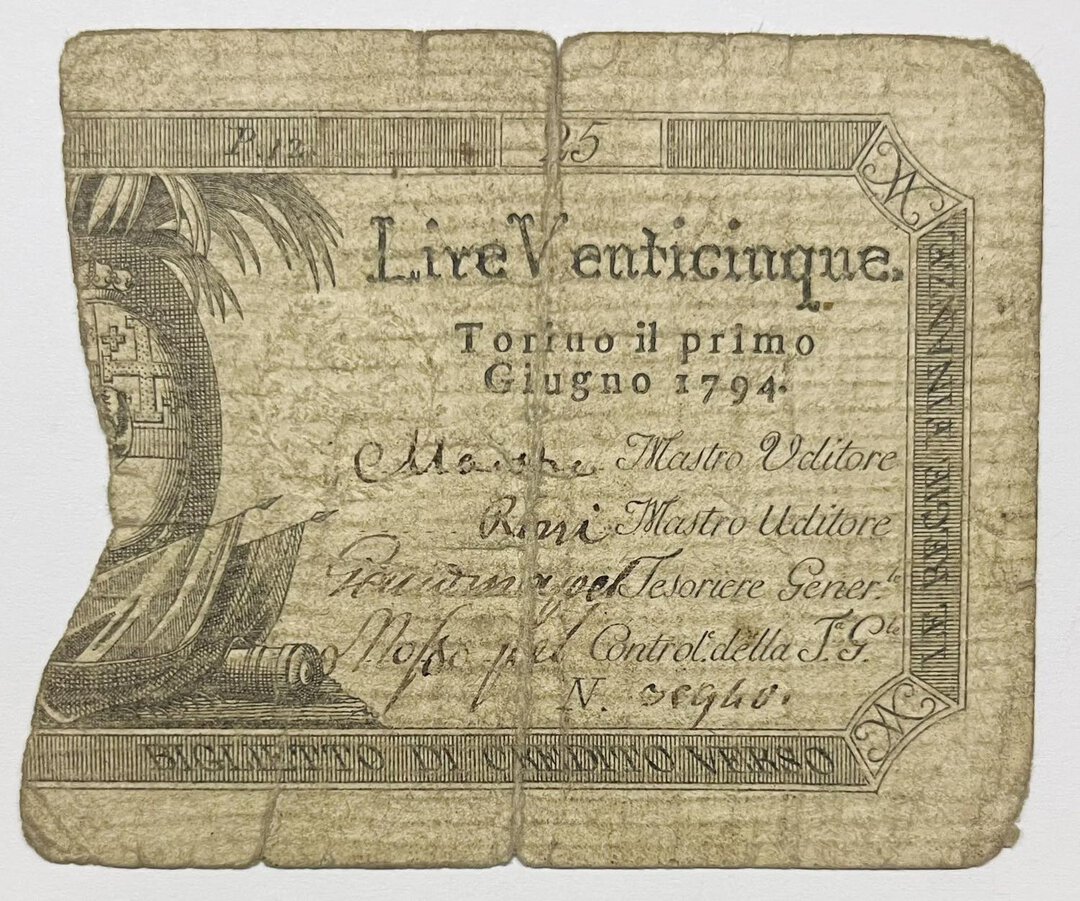 P. 12. 25
Lire Venticinque.
Torino il primo
Giugno 1794.
Mastro Uditore
Mastro Uditore
Tesoriere Gener.le
Control.e della T.a G.le
N.
LE REGNE FINANZE
BIGLIETTO DI CREDITO VERSO